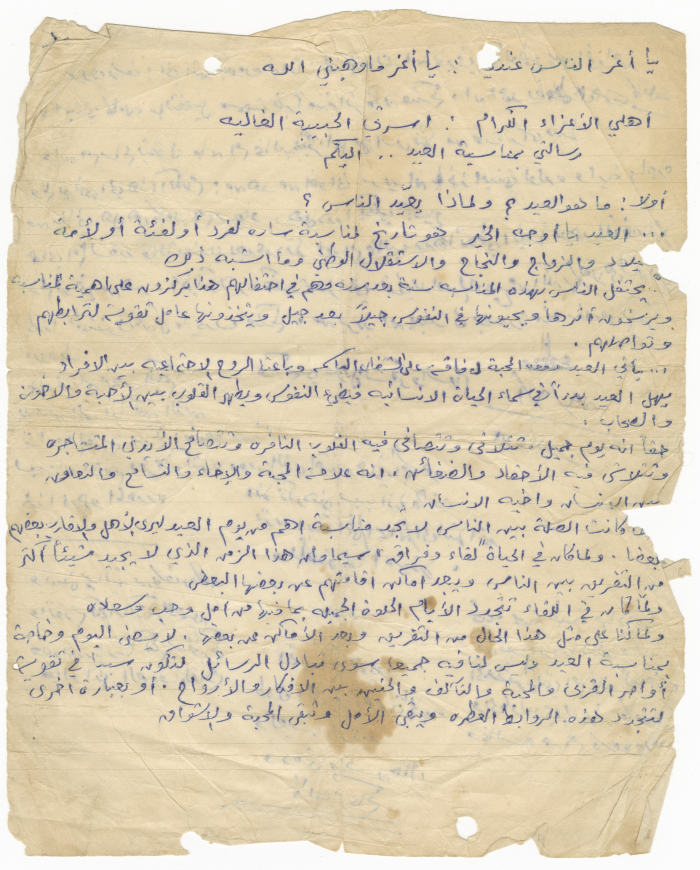 يا أعز الناس عندي .. يا أعز ما وهبني الله
أهلي الأعزاء الكرام .. اسرتي الحبيبة الغاليه
رسالتي بمناسبة العيد .. اليكم
أولاً: ما هو العيد ؟ ولماذا يعيد الناس ؟
... العيد يا أوجه الخير هو تاريخ لمناسبة ساره لفرد أو لفئة أو لأمة
ميلاد والزواج والنجاح والاستقلال الوطني وما اشبه ذلك
.. يحتفل الناس بهذه المناسبه سنة بعد سنه وهم في احتفالهم هذا يركزون على اهمية المناسبه
ويرسخون أثرها ويحيونها في النفوس جيلاً بعد جيل ويتخذونها عامل تقوية لترابطهم
وتواصلهم .
... يأتي العيد المحبة وباعثا الروح الاجتماعيه بين الافراد
ويهل العيد بدراً في سماء الحياة الانسانيه فيضيء النفوس ويطهر القلوب بين الأحبة والاخوة
والصحاب .
حقاً انه يوم جميل تتلاقى وتتصافى فيه القلوب النافره وتتصافح الأيدي المتشاجره
وتتلاشى فيه الأحقاد والضغائن ، انه علامة المحبة والإخاء والتسامح والتعاون
بين الانسان واخيه الانسان
كانت الصلة بين الناس لا يجد مناسبة اهم من يوم العيد ليرى الأهل والاقارب بعضهم
بعضا . ولما كان في الحياة لقاء وفراق سيما وان هذا الزمن الذي لا يجيد شيئاً أكثر
من التفريق بين الناس وبعد اماكن اقامتهم عن بعضها البعض
ولما كان في اللقاء تتجدد الأيام الحلوة الجميله بما فيها من امل وحب وسعاده
ولما كنا على مثل هذا الحال من التفريق وبعد الأماكن عن بعضها . لا يسعني اليوم وخاصة
بمناسبة العيد وليس لنا فيه جميعا سوى تبادل الرسائل لتكون سببا في تقوية
أواصر القربى والمحبة والتآلف والحنين بين الافكار والأرواح . أو بعبارة اخرى
لتتجدد هذه الروابط العطره ويبقى الأمل وتبقى المحبة والاشواق